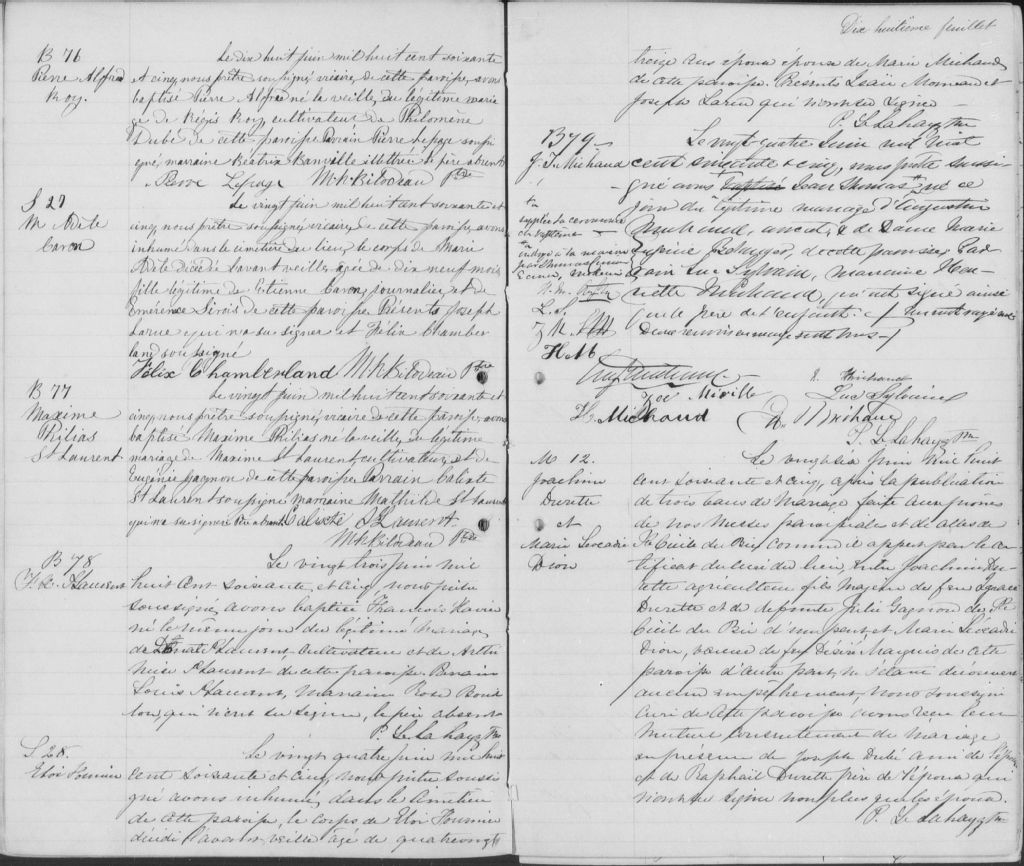 B 76
Pierre Alfred
Roy.
Le dix huit juin mil huit cent soixante
et cinq, nous prêtre soussigné, vicaire, de cette paroisse, avons
baptisé Pierre Alfred né la veille, du légitime maria
ge de Régis Roy, cultivateur, et de Philomène
Dubé de cette paroisse. Parrain Pierre Lepage soussi
gné, marraine Béatrix Banville illettrée le père absent
Pierre Lepage M.h.Bilodeau Ptre
S 27
M Adèle
Caron
Le vingt juin mil huit cent soixante et
cinq, nous prêtre soussigné, vicaire, de cette paroisse, avons
inhumé dans le cimetière du lieu, le corps de Marie
Adèle décédée l'avant veille, agée de dix neuf mois
fille légitime de Etienne Caron, journalier, et de
Emérence Sirois de cette paroisse. Présents Joseph
Larue qui n'a su signer et Félix Chamber
land soussigné
Félix Chamberland M.h.Bilodeau Ptre
B 77
Maxime
Philias
St Laurent
Le vingt juin mil huit cent soixante et
cinq, nous prêtre soussigné, vicaire, de cette paroisse, avons
baptisé Maxime Philias né la veille, du légitime
mariage de Maxime St Laurent, cultivateur, et de
Eugénie Gagnon de cette paroisse. Parrain Calixte
St Laurent soussigné, marraine Mathilde St Laurent
qui n'a su signer. Père absent Calixte St Laurent.
M.h.Bilodeau Ptre
B 78
F. X. St Laurent
Le vingt trois juin mil
huit cent soixante et cinq, nous prêtre
soussigné, avons baptisé François Xavier
né le même jour du légitime mariage
de Donat St Laurent, cultivateur et de Arthé
mise St Laurent de cette paroisse. Parrain
Louis St Laurent, Marraine Rose Boud
qui n'ont su signer, le père absent
P. L. Lahaye Ptre
S 28.
Eloi Fournier
Le vingt quatre juin mil huit
cent soixante et cinq, nous prêtre soussi
gné avons inhumé, dans le cimetière
de cette paroisse, le corps de Eloi Fournier
décédé l'avant veille agé de quatrevingt
Dix huitième feuillet
treize ans époux de Marie Michaud
de cette paroisse. Présents Isaïe Morneau et
Joseph Larue qui n'ont su signer
P. L. Lahaye Ptre
B 79
J. T. Michaud
Le vingt quatre Juin mil huit
cent soixante & cinq, nous prêtre soussi-
gné avons baptisé Jean Thomas né ce
jour du légitime mariage d'Augustin
Michaud, avocat, & de Dame Marie
de cette paroisse, Par
rain Luc Sylvain, marraine Hen
riette Michaud, qui ont signé ainsi
que le père de l'enfant.
Deux renvois en marge sont bons
supplée la cérémonie
du baptême
L. S.
H. M
Michaud
Luc Sylvain
P. L. Lahaye Ptre
M 12.
Joachim
Durette
et
Marie Léocadie
Dion
Le vingt six juin mil huit
cent soixante et cinq, après la publication
de trois bans de mariage faite aux prônes
de nos Messes paroissiales et de celles de
Ste Cécile du Bic, comme il appert par le cer
tificat du curé du lieu, entre Joachim Du
rette agriculteur fils majeur de feu Ignace
Durette et de defunte Julie Gagnon de Ste
Cécile du Bic d'une part, et Marie Léocadie
Dion, veuve de feu Désiré Marquis de cette
paroisse d'autre part, ne s'étant découvert
aucun empêchement, Nous soussigné
curé de cette paroisse avons reçu leur
mutuel consentement de mariage
en présence de Joseph Dubé ami de l'épouse
et de Raphaël Durette père de l'époux qui
n'ont su signer non plus que les époux.
P. L. Lahaye Ptre